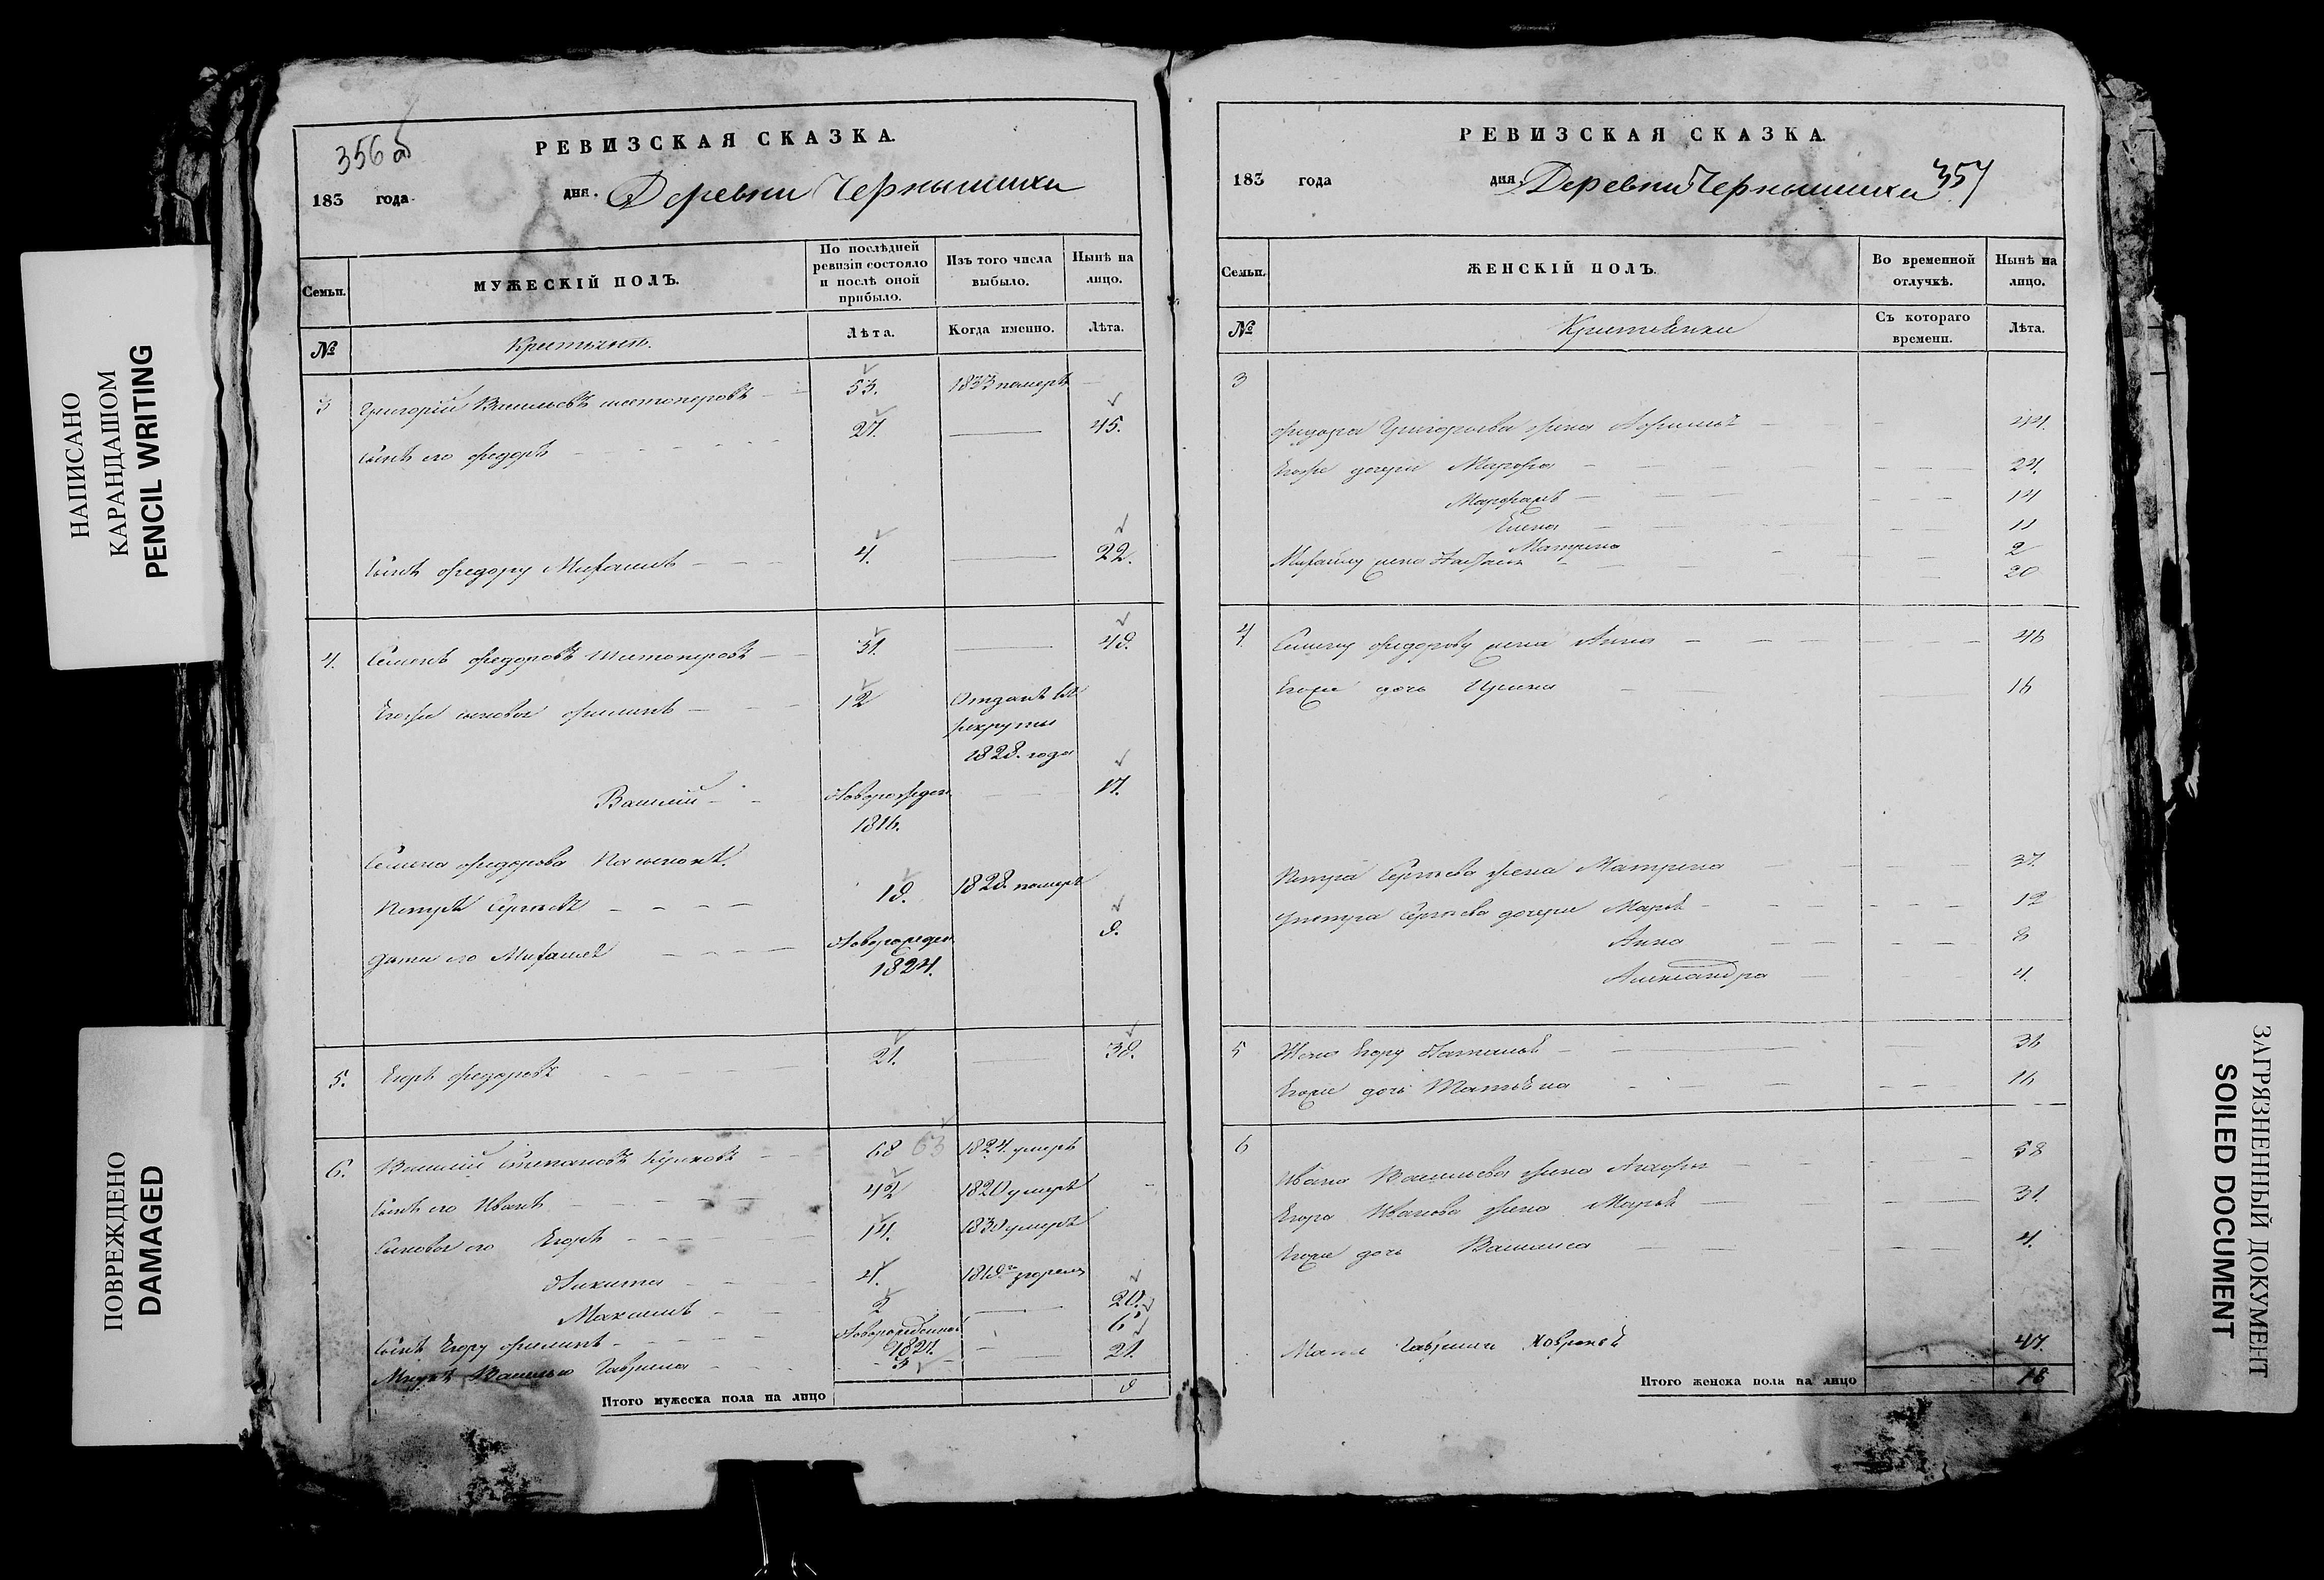 НАПИСАНО
КАРАНДАШОМ
PENCIL WRITING
ПОВРЕЖДЕНО
DAMAGED
356 об
РЕВИЗСКАЯ СКАЗКА.
183 года дня. Деревни Чернышихи
Семьи. МУЖЕСКІЙ ПОЛЪ. По послѣдней ревизіи состояло и послѣ оной прибыло. Изъ того числа выбыло. Нынѣ на лицо.
№ Крестьянъ. Лѣта. Когда именно. Лѣта.
3 Григорій Васильевъ 53. 1833 померъ
Сынъ его Федоръ 27. 45.
Сынъ Федору Михаилъ 4. 22.
4. Семенъ Федоровъ 31. 49.
Егоже сыновья Филипъ 12 Отданъ въ
рекруты
1828. года
Василій Новорожден. 17.
1816.
Семена Федорова
Петръ Сергѣевъ 19. 1828. померъ
Дѣти его Михаилъ Новорожден. 9.
1824.
5. Егоръ Федоровъ 21. 39.
6. Василій Степановъ 68 63 1824. умеръ
Сынъ его Иванъ 42 1820 умеръ
Сыновья его Егоръ 14. умеръ
Никита 4.
Максимъ 2 20.
Сынъ Егору Филипъ Новорожденной 6
1827.
Василью Гаврила 3 21.
Итого мужеска пола на лицо 9
РЕВИЗСКАЯ СКАЗКА.
183 года дня. Деревни Чернышихи 357
Семьи. ЖЕНСКІЙ ПОЛЪ. Во временной отлучкѣ. Нынѣ на лицо.
№ Крестьянки Съ котораго времени. Лѣта.
3
Федора Григорьева жена 44.
Егоже дочери Марфа 24.
14
Елена 11
Матрена 2
Михайлу жена 20
4. Семену Федорову жена Анна 46
Егоже дочь Ирина 16
Петра Сергѣева жена Матрена 37.
Петра Сергѣева дочери Марья 12
Анна 8
Александра 4.
5 Жена Егору Наталья 36
Егоже дочь Татьяна 16
6
Ивана Васильева жена 58
Егора Иванова жена Марья 31.
Егоже дочь Василиса 4.
Мать Гаврилы 47.
Итого женска пола на лицо 18
ЗАГРЯЗНЕННЫЙ ДОКУМЕНТ
SOILED DOCUMENT